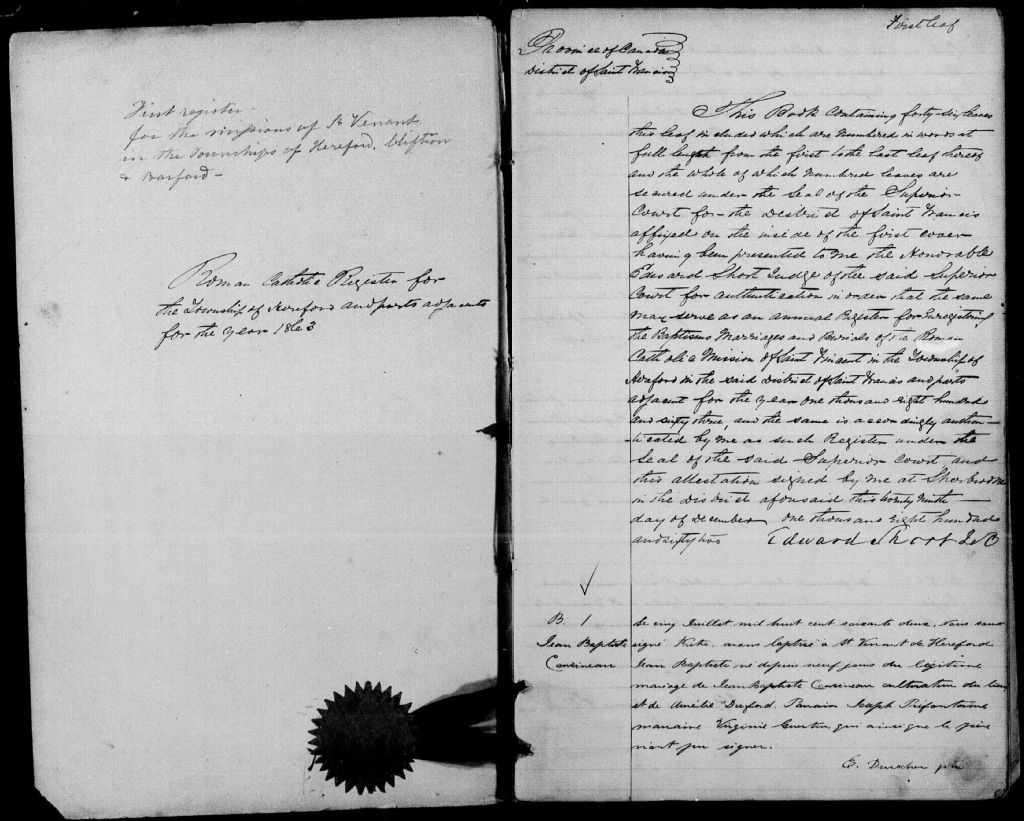 First register
for the missions of St Venant
in the Townships of Hereford, Clifton
& Barford -
Roman Catholic Register for
the Township of Hereford and parts adjacents
for the year 1863
First leaf
Province of Canada
District of Saint Francis
This Book containing forty-six leaves
this leaf included which are numbered in words at
full length from the first to the last leaf thereof
and the whole of which numbered leaves are
secured under the seal of the Superior
Court for the District of Saint Francis
affixed on the inside of the first cover
having been presented to me the Honorable
Edward Short Judge of the said Superior
Court for authentication in order that the same
may serve as an annual Register for Enregistering
the Baptisms Marriages and Burials of the Roman
Catholic Mission of Saint Vincent in the Township of
Hereford in the said District of Saint Francis and parts
adjacent for the year one thousand eight hundred
and sixty three, and the same is accordingly authen-
-ticated by me as such Register under the
Seal of the said Superior Court, and
this attestation signed by me at Sherbrooke
in the District aforesaid this twenty ninth
day of December one thousand eight hundred
and sixty two Edward Short
B. 1
Jean Baptiste
Cousineau
Le cinq Juillet mil huit cent soixante deux, Nous sous
signé Prêtre avons baptisé à St Venant de Hereford
Jean Baptiste né depuis neuf jours du légitime
mariage de Jean Baptiste Cousineau cultivateur du lieu
et de Aurélie Parrain Joseph Préfontaine
marraine Virginie qui ainsi que le père
n'ont pu signer.
E. Durocher ptre